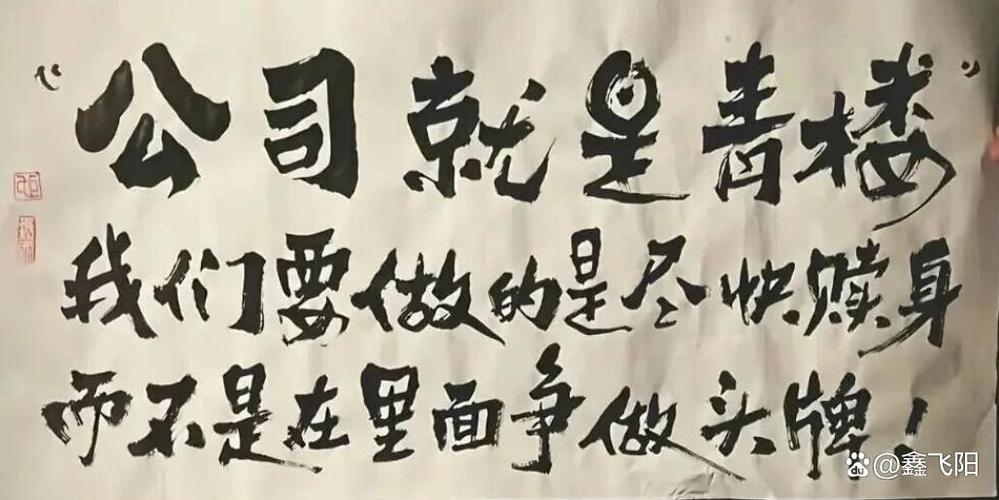 “公司就是青楼”
我们要做的是尽快赎身
而不是在里面争做头牌！
du @鑫飞阳